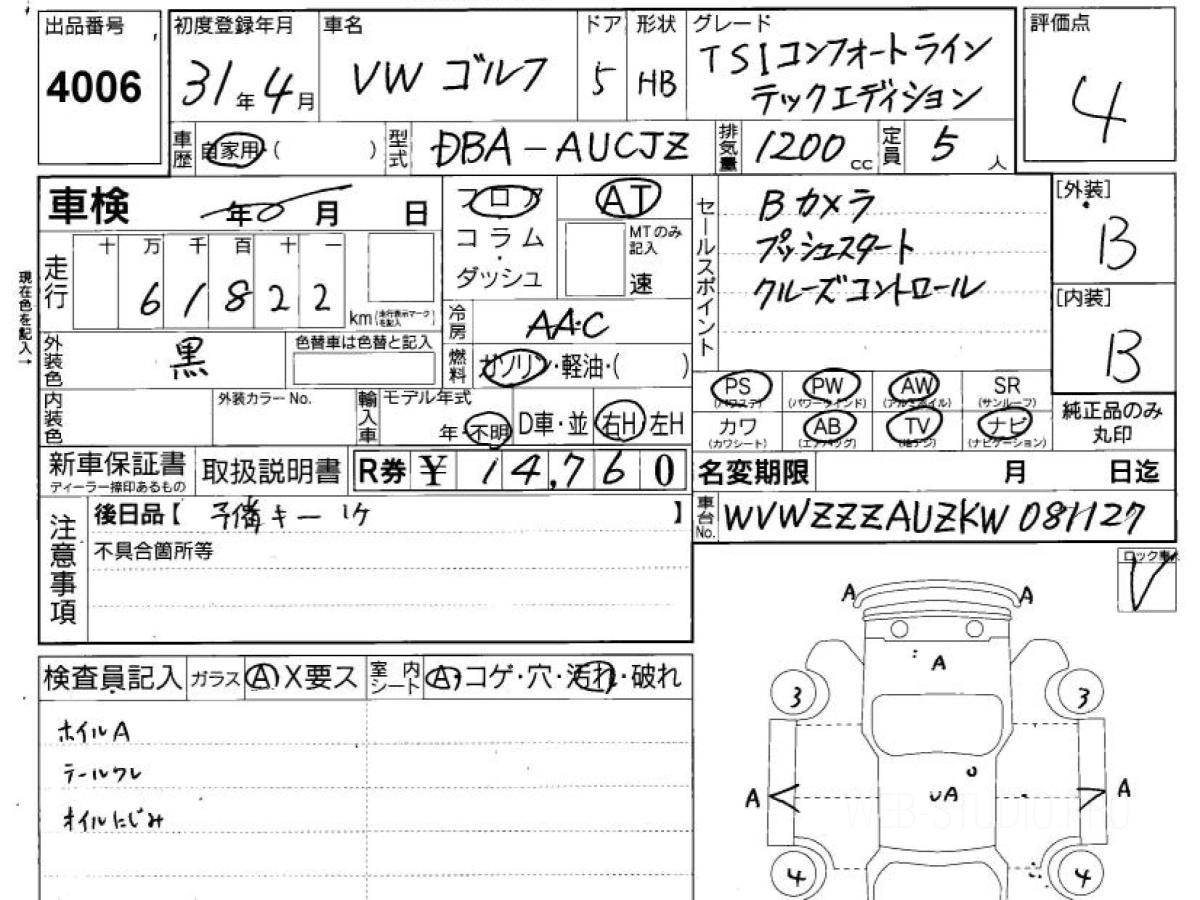 出品番号
4006
初度登録年月
31年4月
車名
VW ゴルフ
ドア
5
形状
HB
グレード
TSIコンフォートライン
テックエディション
評価点
4
車歴
自家用・( )
型式
DBA-AUCJZ
排気量
1200cc
定員
5人
車検
年 月 日
フロア
コラム
・
ダッシュ
AT
MTのみ
記入
速
セールスポイント
Bカメラ
プッシュスタート
クルーズコントロール
[外装]
B
[内装]
B
現在色を記入→
走行
十 万 千 百 十 一
6 1 8 2 2
km(走行表示マークを記入)
冷房
AAC
燃料
ガソリン・軽油・( )
外装色
黒
色替車は色替と記入
内装色
外装カラーNo.
輸入車
モデル年式
年・不明
D車・並
右H・左H
PS
(パワステ)
PW
(パワーウインド)
AW
(アルミホイル)
SR
(サンルーフ)
カワ
(カワシート)
AB
(エアバッグ)
TV
(地デジ)
ナビ
(ナビゲーション)
純正品のみ
丸印
新車保証書
ディーラー捺印あるもの
取扱説明書
R券 ¥ 14,760
名変期限
月 日迄
注意事項
後日品【 予備キー1ケ 】
不具合箇所等
車台No.
WVWZZZAUZKW081127
ロック車
V
検査員記入
ガラス
A X要ス
室内シート
A・コゲ・穴・汚れ・破れ
ホイルA
テールワレ
オイルにじみ
A A
A
3 3
A UA A
4 4
WEB-STUDIO.PRO